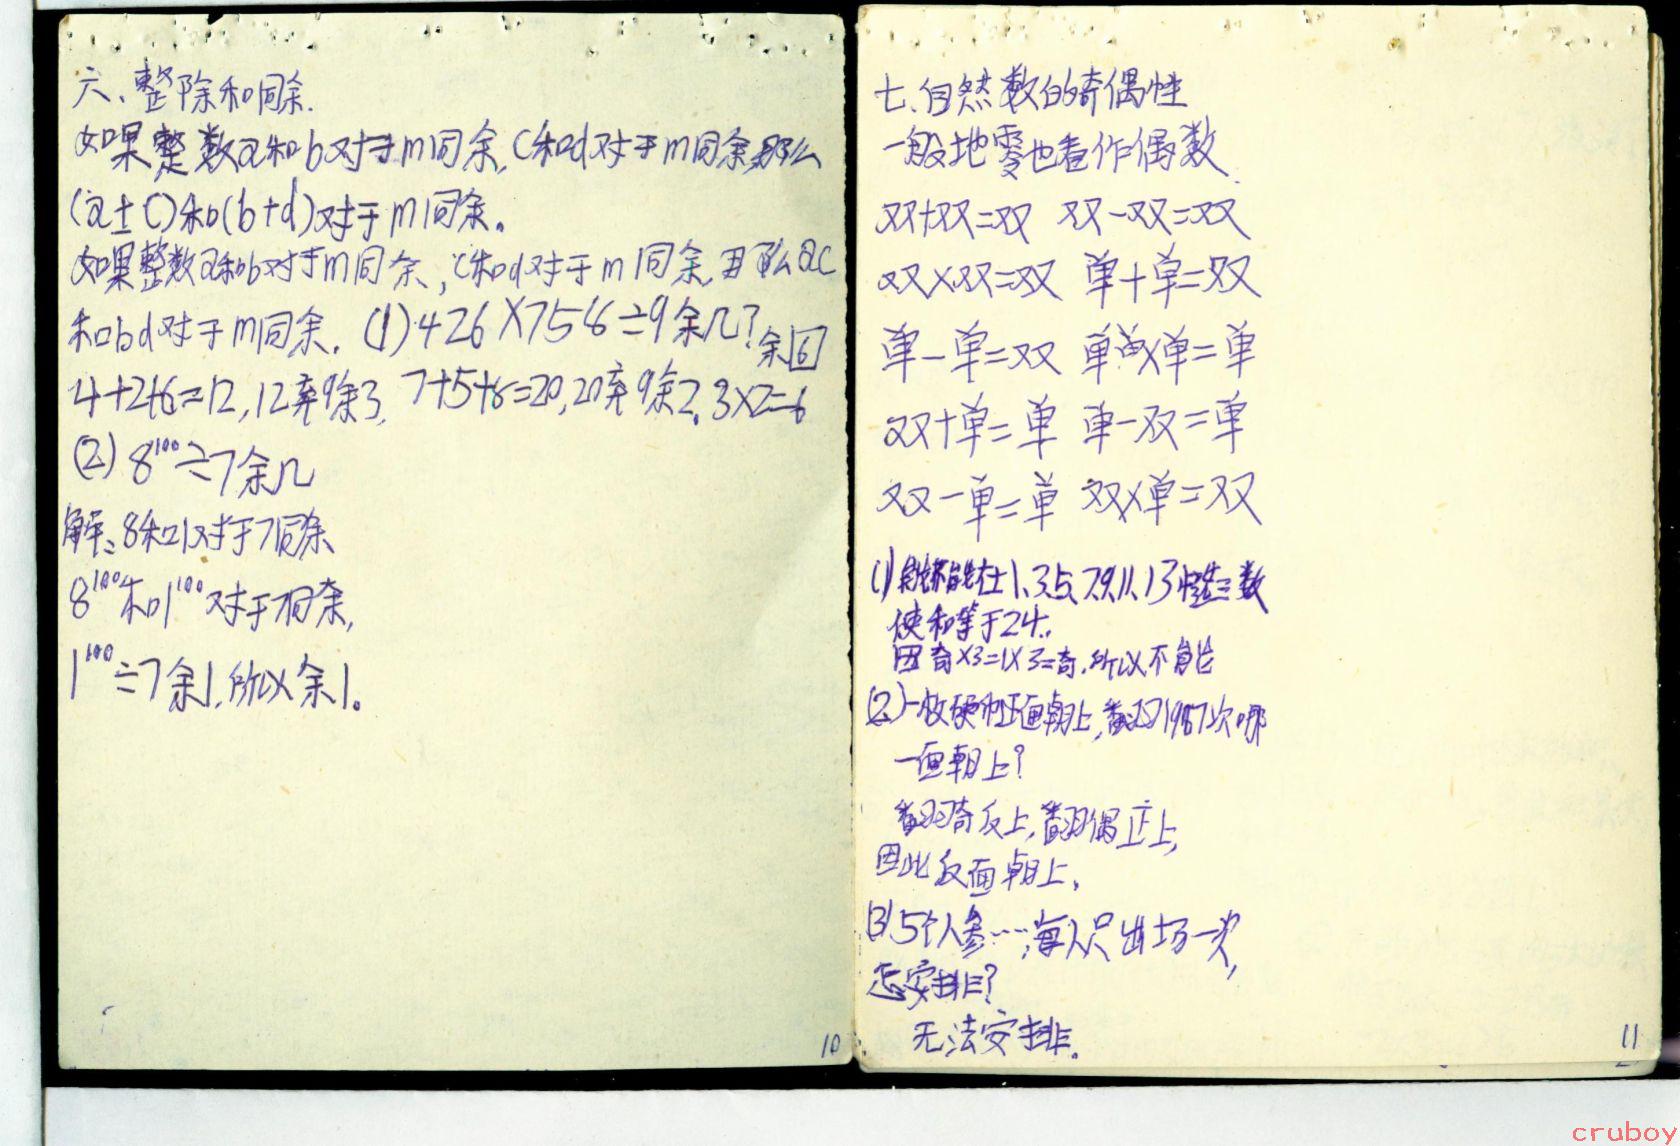 六、整除和同余.
如果整数a和b对于m同余,c和d对于m同余,那么
(a±c)和(b+d)对于m同余。
如果整数a和b对于m同余,c和d对于m同余,那么ac
和bd对于m同余. (1)426×758÷9余几?
余6
4+2+6=12,12弃9余3, 7+5+8=20,20弃9余2,3×2=6
(2)8¹⁰⁰÷7余几
解:8和1对于7同余
8¹⁰⁰和1¹⁰⁰对于7同余,
1¹⁰⁰÷7余1,所以余1。
10
七.自然数的奇偶性
一般地零也看作偶数.
双+双=双 双-双=双
双×双=双 单+单=双
单-单=双 单×单=单
双+单=单 单-双=单
双-单=单 双×单=双
(1)能不能在1、3、5、7、9、11、13中选三数
使和等于24.
因奇×3=1×3=奇.所以不能
(2)一枚硬币正面朝上,翻动1987次哪
一面朝上?
翻奇反上,翻偶正上,
因此反面朝上.
(3)5个人参……,每人只出场一次,
怎安排?
无法安排。
11
cruboy